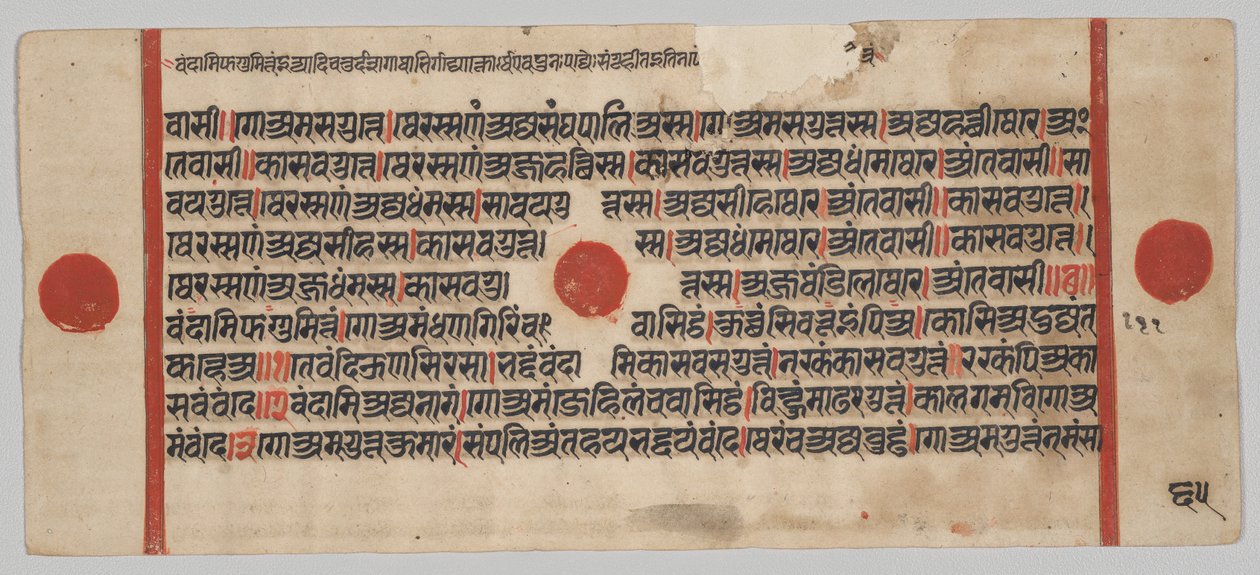 वंदामिफग्गुमित्तंइत्यादिचतुर्दशगाथाभिर्गद्योक्तोर्थएवपुनःपद्यैःसंगृहीतइतिन
वासी॥गोअमसगुत्ते।थेरस्सणंअज्जसंघपालिअस्स।गोअमसगुत्तस्स।अज्जहत्थीथेरे।अं
तेवासी॥कासवगुत्ते।थेरस्सणंअज्जहत्थिस्स।कासवगुत्तस्स।अज्जधंमेथेरे।अंतेवासी॥सा
वयगुत्ते।थेरस्सणंअज्जधंमस्स।सावयगुत्तस्स।अज्जसीहेथेरे।अंतेवासी॥कासवगुत्ते॥
थेरस्सणंअज्जसीहस्स।कासवगुत्तस्स।अज्जधंमेथेरे।अंतेवासी॥कासवगुत्ते॥
थेरस्सणंअज्जधंमस्स।कासवगुत्तस्स।अज्जसंडिलेथेरे।अंतेवासी॥छ॥
वंदामिफग्गुमित्तं।गोअमंधणगिरिंचवासिट्ठं।कुच्छंसिवभूइंपिअ।कोसिअदुज्जंत
कण्हेअ॥१॥तेवंदिऊणसिरसा।भद्दंवंदामिकासवसगुत्तं।नक्खंकासवगुत्तं॥रक्खंपिअका
सवंवंदे॥२वंदामिअज्जनागं।गोअमंजेहिलंचवासिट्ठं।विण्हुंमाढरगुत्तं।कालगमविगोअ
मंवंदे।३गोअमगुत्तकुमारं।संपलिअंतहयभद्दयंवंदे।थेरंचअज्जवुड्ढं।गोअमगुत्तंनमंसा
६५